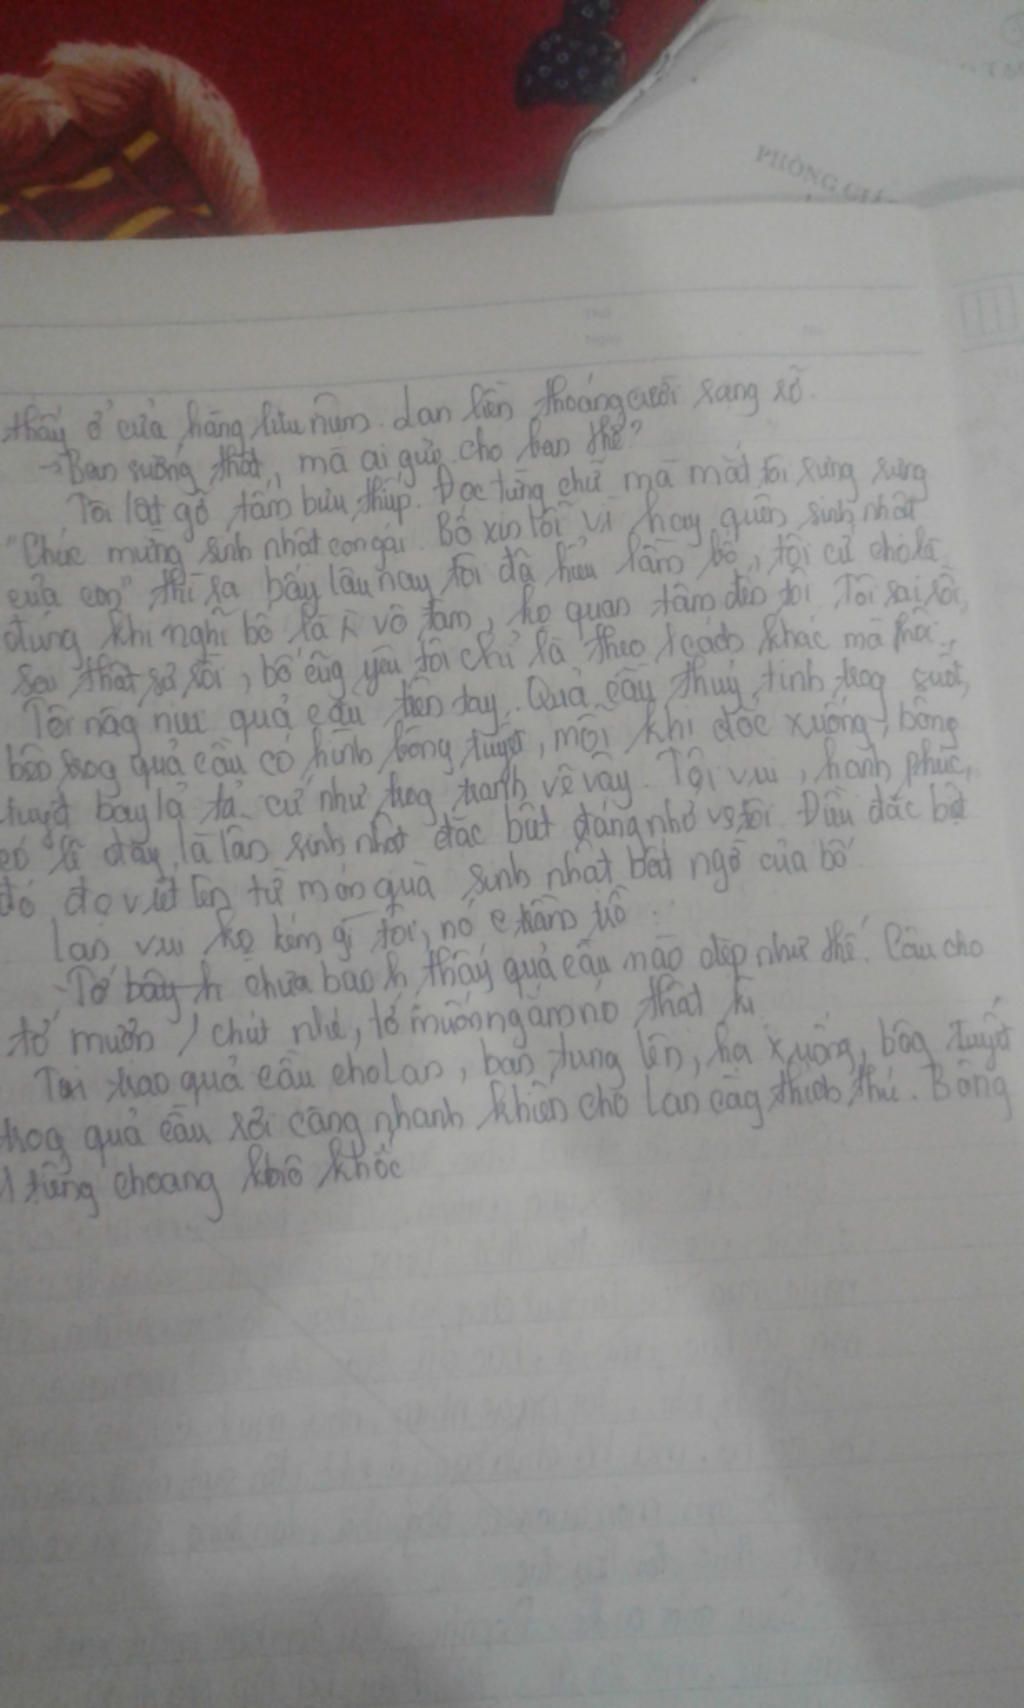 PHÒNG GIÁ
thấy ở cửa hàng lưu niệm. Lan liền thoáng cười rạng rỡ.
→ Bạn sướng thật, mà ai gửi cho bạn thế?
Tôi lật gỡ tấm bưu thiếp. Đọc từng chữ mà mắt tôi rưng rưng
"Chúc mừng sinh nhật con gái. Bố xin lỗi vì hay quên sinh nhật
của con" thì ra bấy lâu nay tôi đã hiểu lầm bố, tôi cứ cho là
đúng khi nghĩ bố là vô tâm, ko quan tâm đến tôi Tôi sai rồi,
sai thật sự rồi, bố cũg yêu tôi chỉ là theo 1 cách khác mà thôi.
Tôi nâg niu quả cầu trên tay. Quả cầu thuỷ tinh trog suốt,
bên trog quả cầu có hình bông tuyết, mỗi khi dốc xuống, bông
tuyết bay lả tả cứ như trog tranh vẽ vậy. Tôi vui, hạnh phúc,
có lẽ đây là lần sinh nhật đặc biệt đáng nhớ vs tôi. Điều đặc biệt
đó đc viết lên từ món quà sinh nhật bất ngờ của bố
Lan vui ko kém gì tôi, nó trầm trồ
- Tớ bây h chưa bao h thấy quả cầu nào đẹp như thế. Cậu cho
tớ mượn 1 chút nhé, tớ muốn ngắm nó thật kĩ
Tôi trao quả cầu cho Lan, bạn tung lên, hạ xuống, bôg tuyết
trog quả cầu rơi càng nhanh khiến cho Lan càg thích thú. Bỗng
1 tiếng choang khô khốc